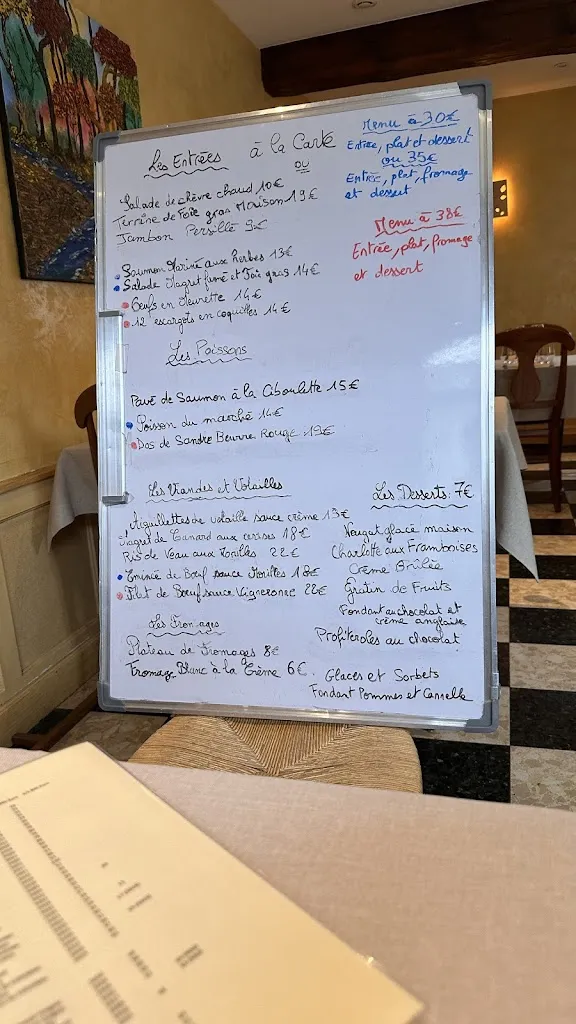 Les Entrées à la Carte
ou
Salade de chèvre chaud 10€
Terrine de Foie gras Maison 19€
Jambon Persillé 9€
Saumon Mariné aux herbes 13€
Salade Magret fumé et Foie gras 14€
Oeufs en Meurette 14€
12 escargots en coquilles 14€
Menu à 30€
Entrée, plat et dessert
ou 35€
Entrée, plat, fromage
et dessert
Menu à 38€
Entrée, plat, fromage
et dessert
Les Poissons
Pavé de Saumon à la Ciboulette 15€
Poisson du marché 14€
Dos de Sandre Beurre Rouge 19€
Les Viandes et Volailles
Aiguillettes de volaille sauce crème 15€
Magret de Canard aux cerises 18€
Ris de Veau aux Morilles 22€
Emincé de Bœuf sauce Morilles 18€
Filet de Bœuf sauce Vigneronne 22€
Les Fromages
Plateau de Fromages 8€
Fromage Blanc à la Crème 6€
Les Desserts: 7€
Nougat glacé maison
Charlotte aux Framboises
Crème Brûlée
Gratin de Fruits
Fondant au chocolat et
crème anglaise
Profiteroles au chocolat
Glaces et Sorbets
Fondant Pommes et Cannelle